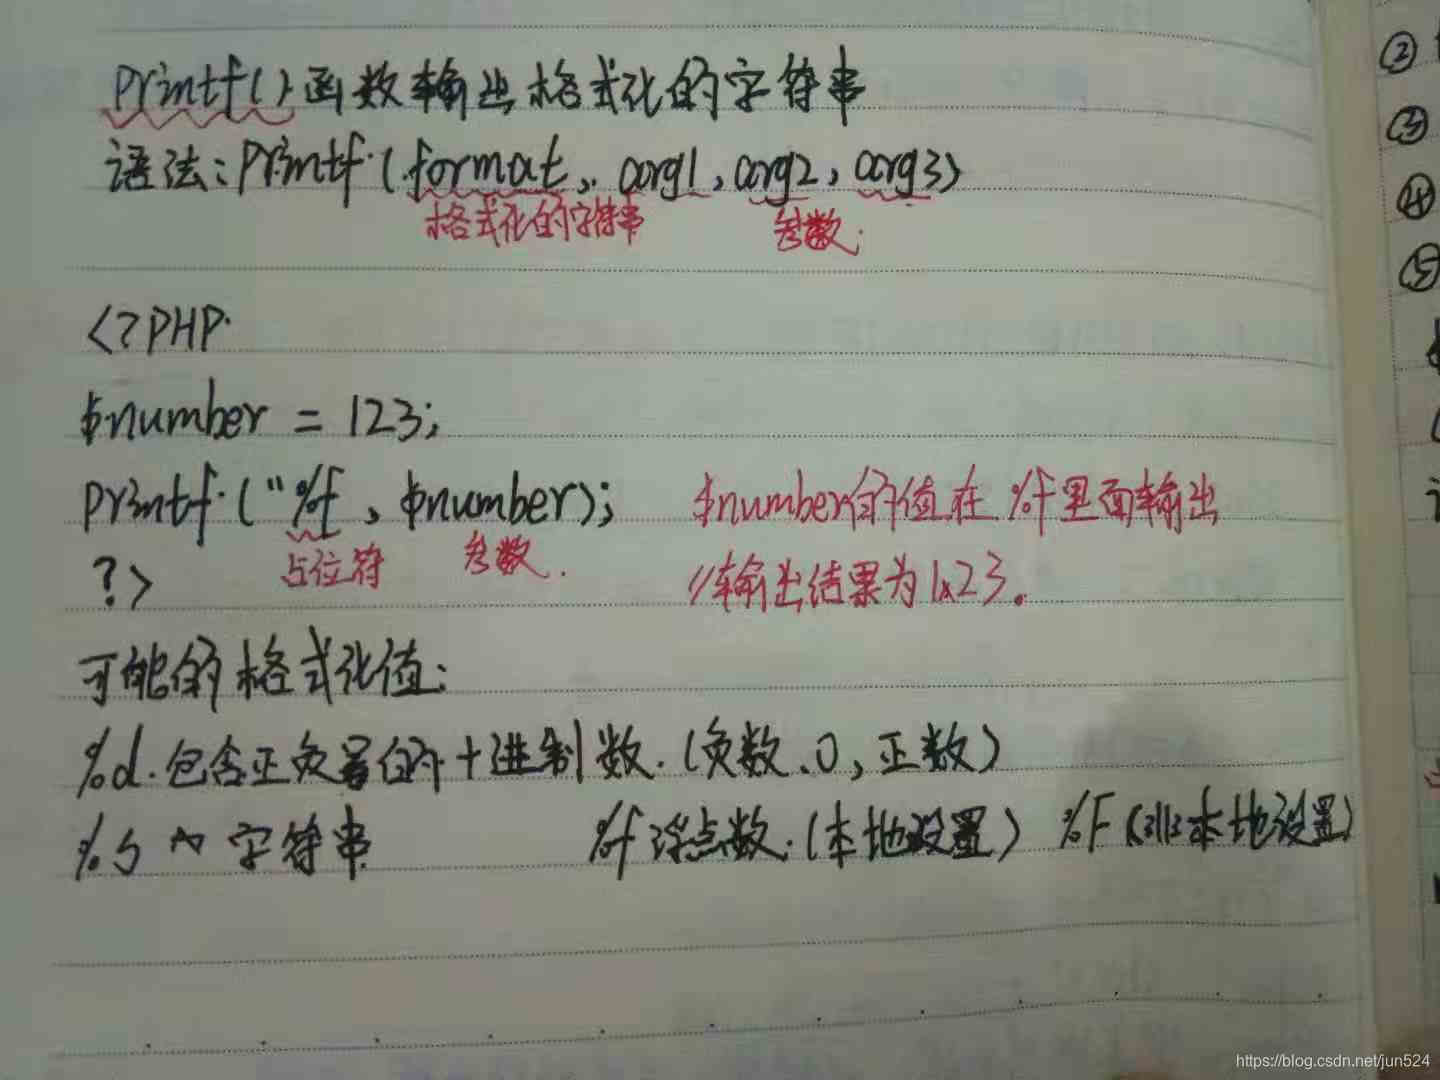 printf()函数输出格式化的字符串
语法:printf(format,arg1,arg2,arg3)
格式化的字符串 参数.
<?PHP
$number = 123;
printf("%f, $number); $number的值在%f里面输出
占位符 参数.
?> //输出结果为123。
可能的格式化值:
%d.包含正负号的十进制数.(负数、0,正数)
%s 字符串 %f 浮点数.(本地设置) %F(非本地设置)
②
③
④
⑤
https://blog.csdn.net/jun524